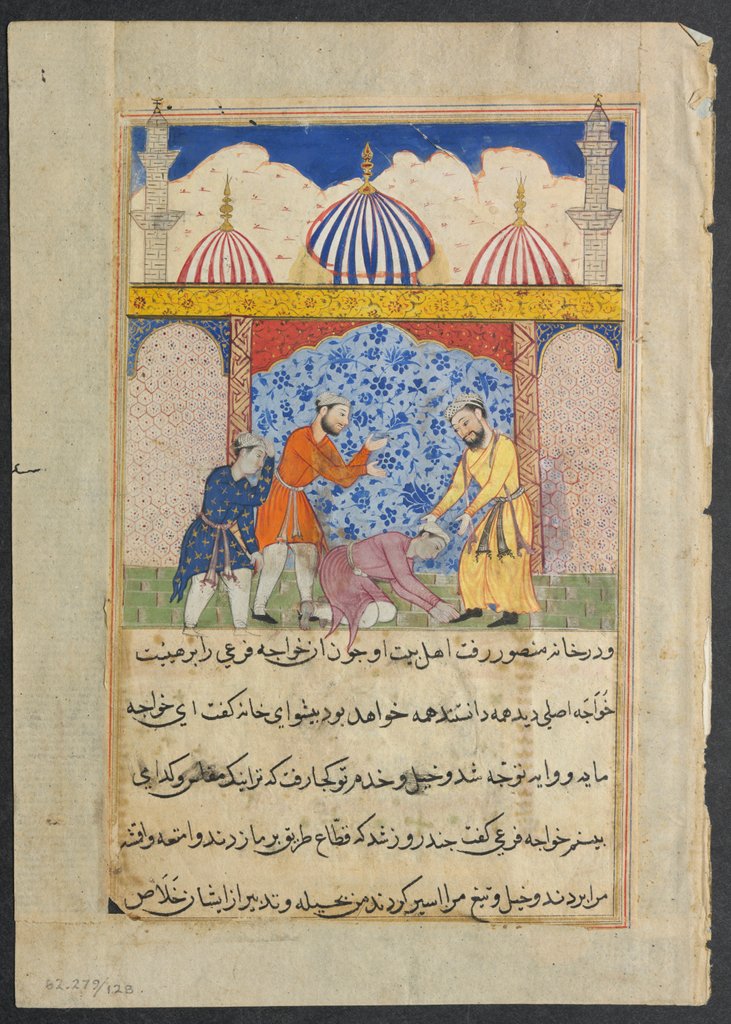 و در خانه منصور رفت اهل بیت او جون ان خواجه فرعي را بر هیئت
خواجه اصلی دیدهمه دانستند همه خواهد بود بیشوای خانه کفت ای خواجه
مایه و وایه توجه شد و خیل و خدم تو کجا رفت که ترا اینک مفلس و کدای
بینم خواجه فرعی کفت جند روز شد که قطّاع طریق بر ما زدند و امتعه واقشه
مرا بردند و خیل و تبغ مرا اسیر کردند من بحیله و تدبیر از ایشان خَلَاص
62.279/12B.